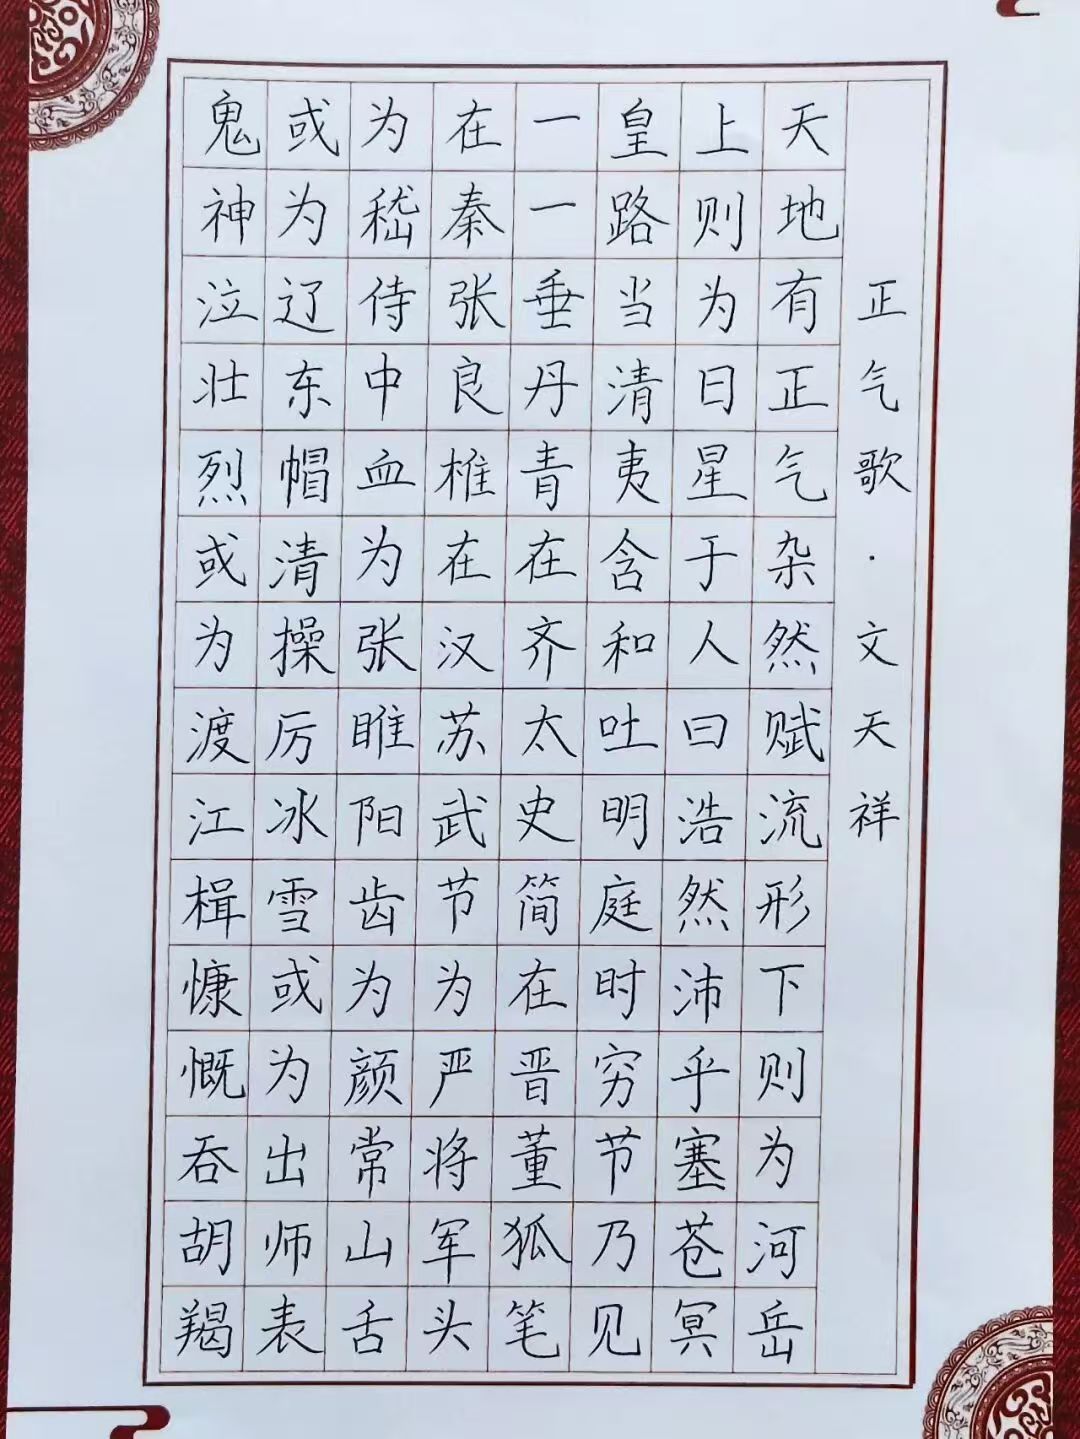 正气歌·文天祥
天地有正气杂然赋流形下则为河岳
上则为日星于人曰浩然沛乎塞苍冥
皇路当清夷含和吐明庭时穷节乃见
一一垂丹青在齐太史简在晋董狐笔
在秦张良椎在汉苏武节为严将军头
为嵇侍中血为张睢阳齿为颜常山舌
或为辽东帽清操厉冰雪或为出师表
鬼神泣壮烈或为渡江楫慷慨吞胡羯